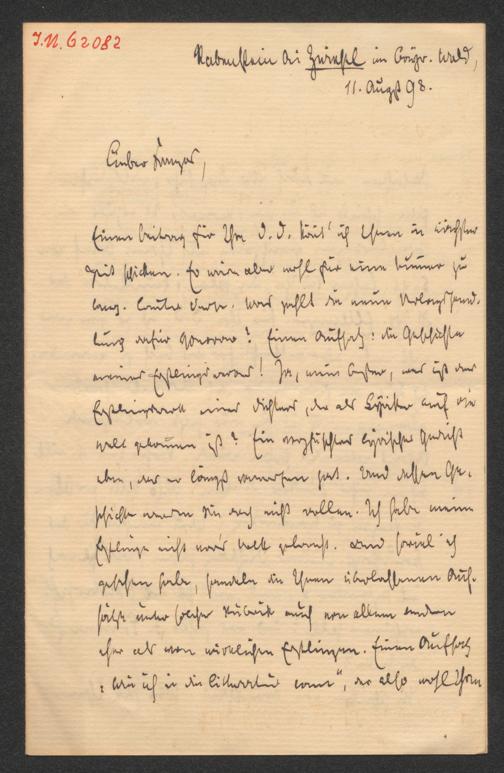 I.N. 62082
Rabenstein bei Zwiesel im bayr. Wald,
11. August 98.
Lieber Franzos,
Einen Beitrag für Ihre D. D. könnt' ich Ihnen in nächster
Zeit schicken. Er wird aber wohl für eine Nummer zu
lang. Lauter Verse. Was zahlt die neue Verlagshand-
lung dafür Honorar? Einen Aufsatz: die Geschichte
meines Erstlingswerks! Ja, mein Bester, was ist das
Erstlingswerk eines Dichters, der als Lyriker auf die
Welt gekommen ist? Ein verpfuschtes lyrisches Gedicht
eben, das er längst verworfen hat. Und dessen Ge-
schichte werden Sie doch nicht wollen. Ich habe meine
Erstlinge nicht vor's Volk gebracht. Und soviel ich
gesehen habe, handeln die Ihnen überlassenen Auf-
sätze unter solcher Rubrik auch von allem andern
eher als von wirklichen Erstlingen. Einen Aufsatz
: "Wie ich in die Litteratur kam", der also wohl Ihrem